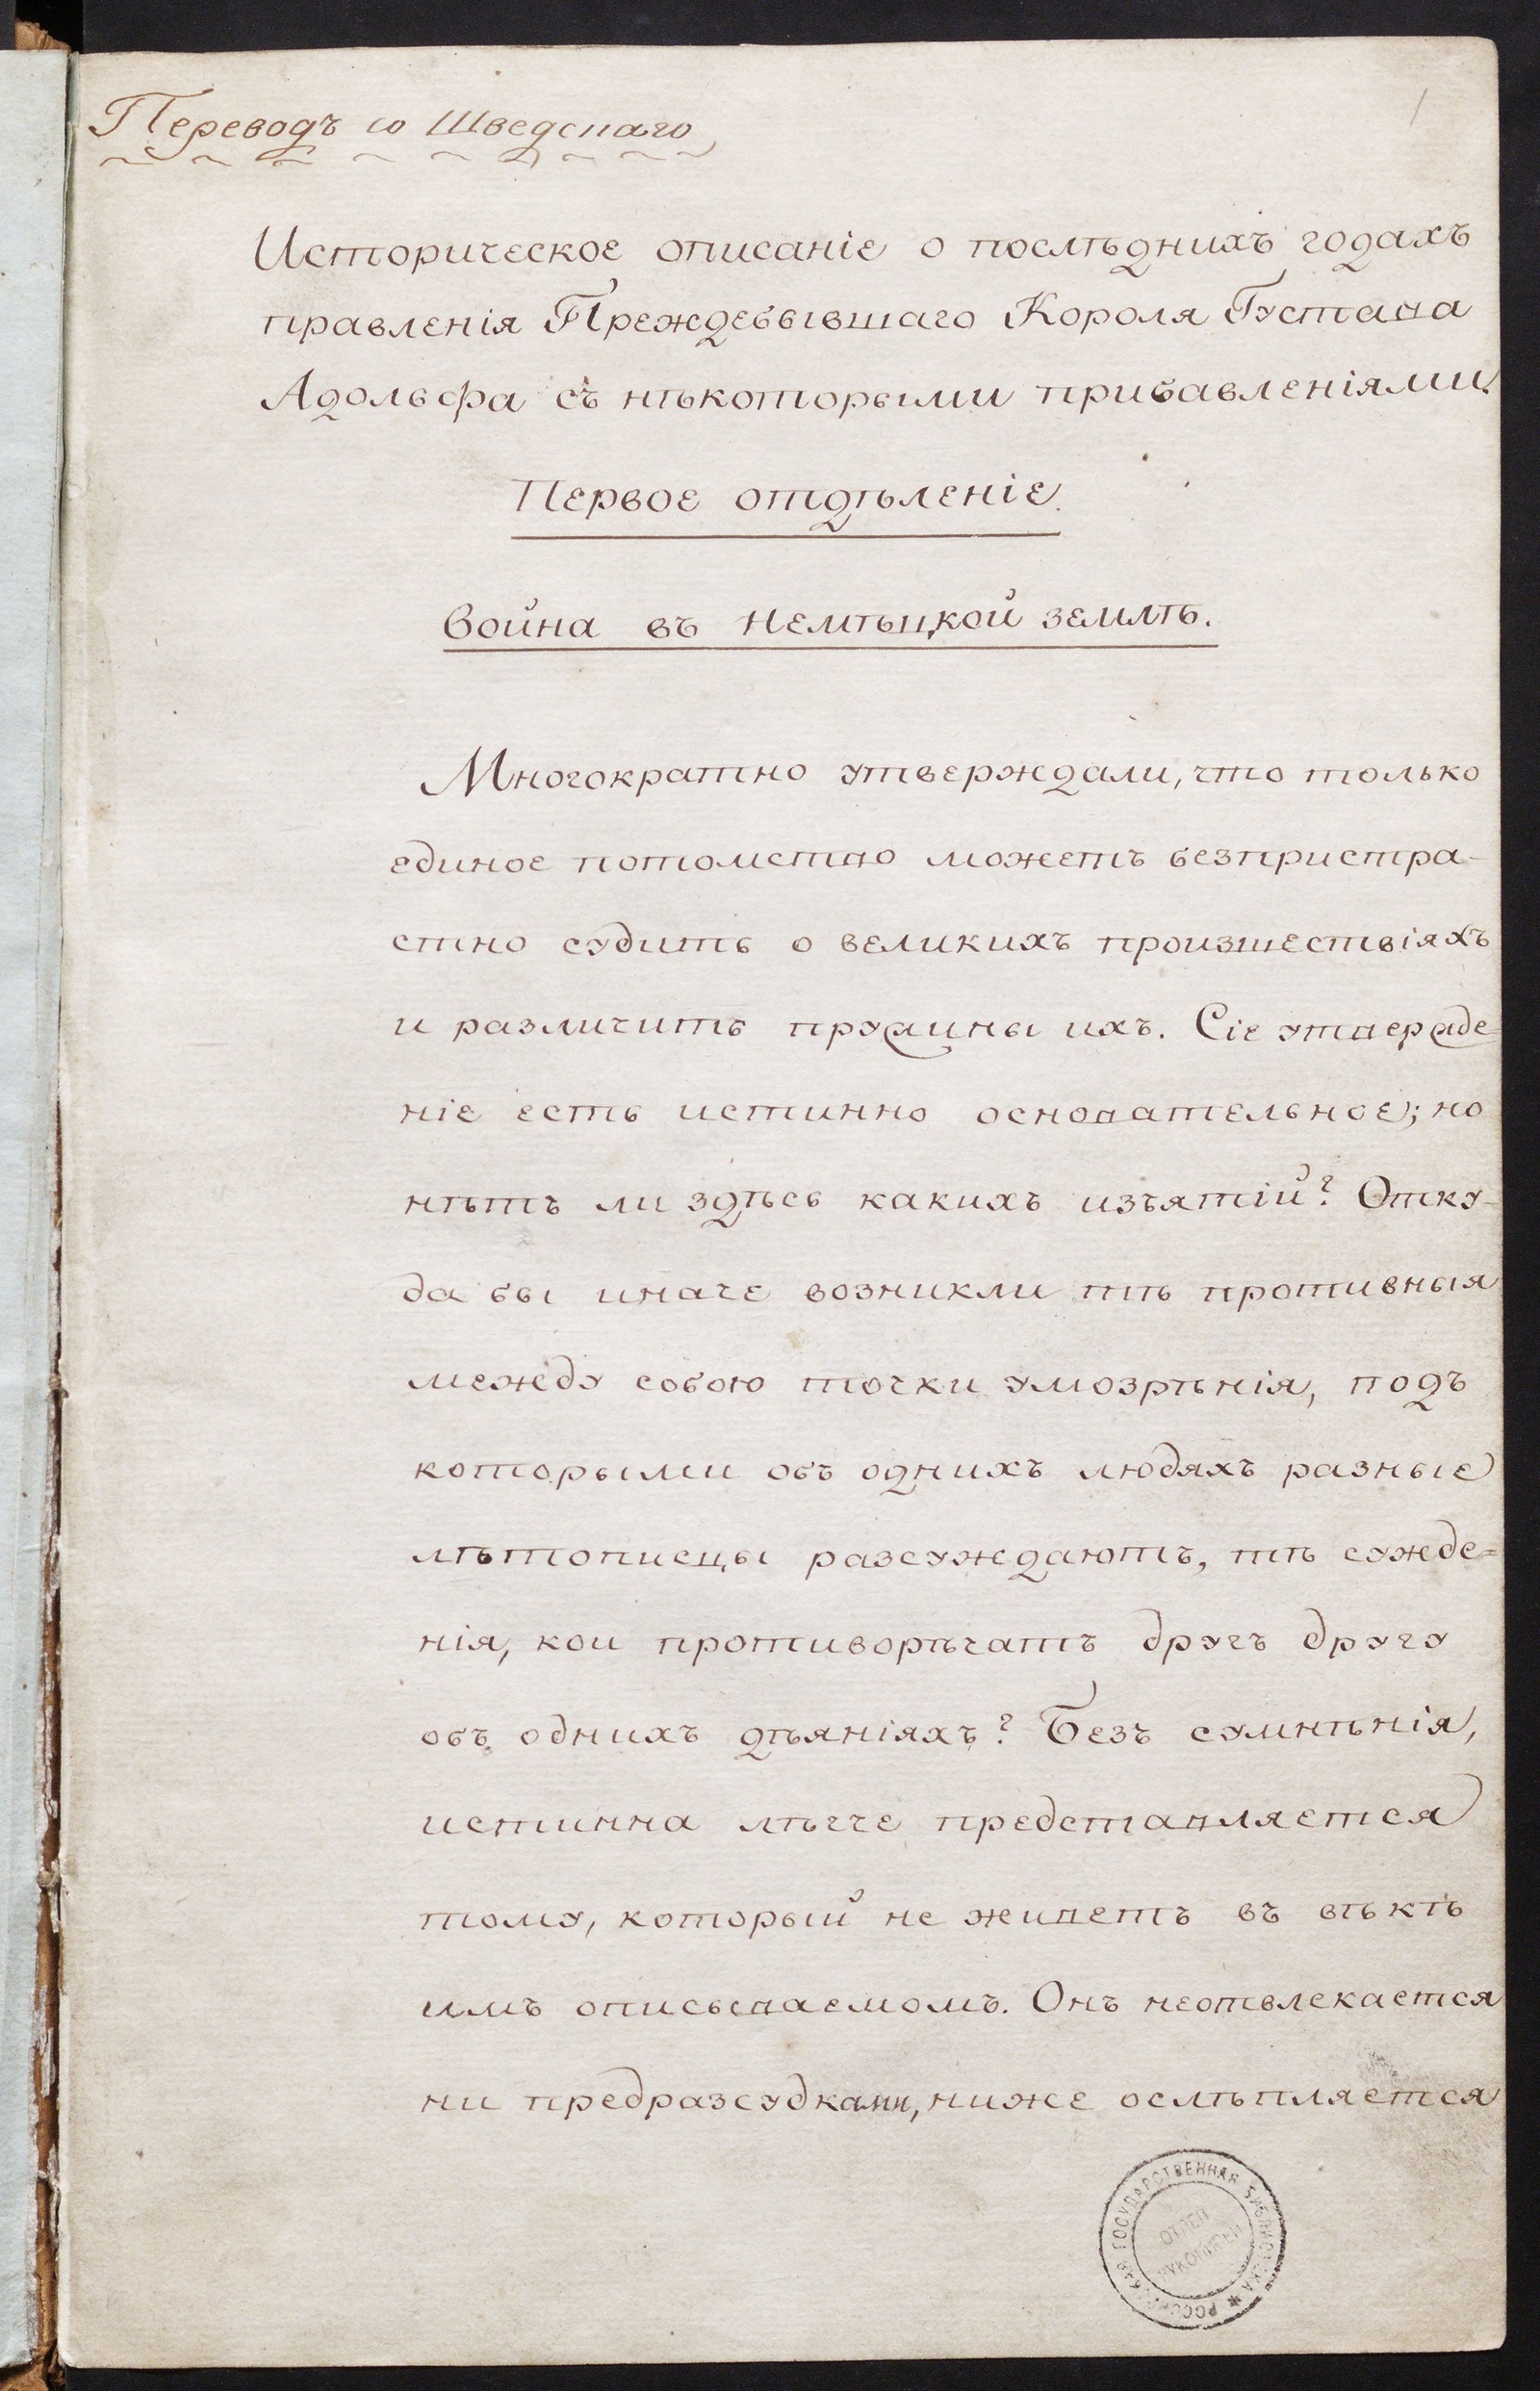 Переводъ со Шведскаго
1
Историческое описаніе о послѣднихъ годахъ
правленія Преждебывшаго Короля Густава
Адольфа съ нѣкоторыми прибавленіями.
Первое отдѣленіе.
Война въ Немѣцкой землѣ.
Многократно утверждали, что только
единое потомство можетъ безпристра-
стно судить о великихъ произшествіяхъ
и различить пружины ихъ. Сіе утвержде=
ніе есть истинно основательное; но
нѣтъ ли здѣсь какихъ изъятій? Отку-
да бы иначе возникли тѣ противныя
между собою точки умозрѣнія, подъ
которыми объ однихъ людяхъ разные
лѣтописцы разсуждаютъ, тѣ сужде=
нія, кои противорѣчатъ другъ другу
объ однихъ дѣяніяхъ? Безъ сумнѣнія,
истинна лѣгче представляется
тому, который не живетъ въ вѣкѣ
имъ описываемомъ. Онъ неотвлекается
ни предразсудками, ниже ослѣпляется
РОССИЙСКАЯ ГОСУДАРСТВЕННАЯ БИБЛИОТЕКА *
ОТДЕЛ
РУКОПИСЕЙ